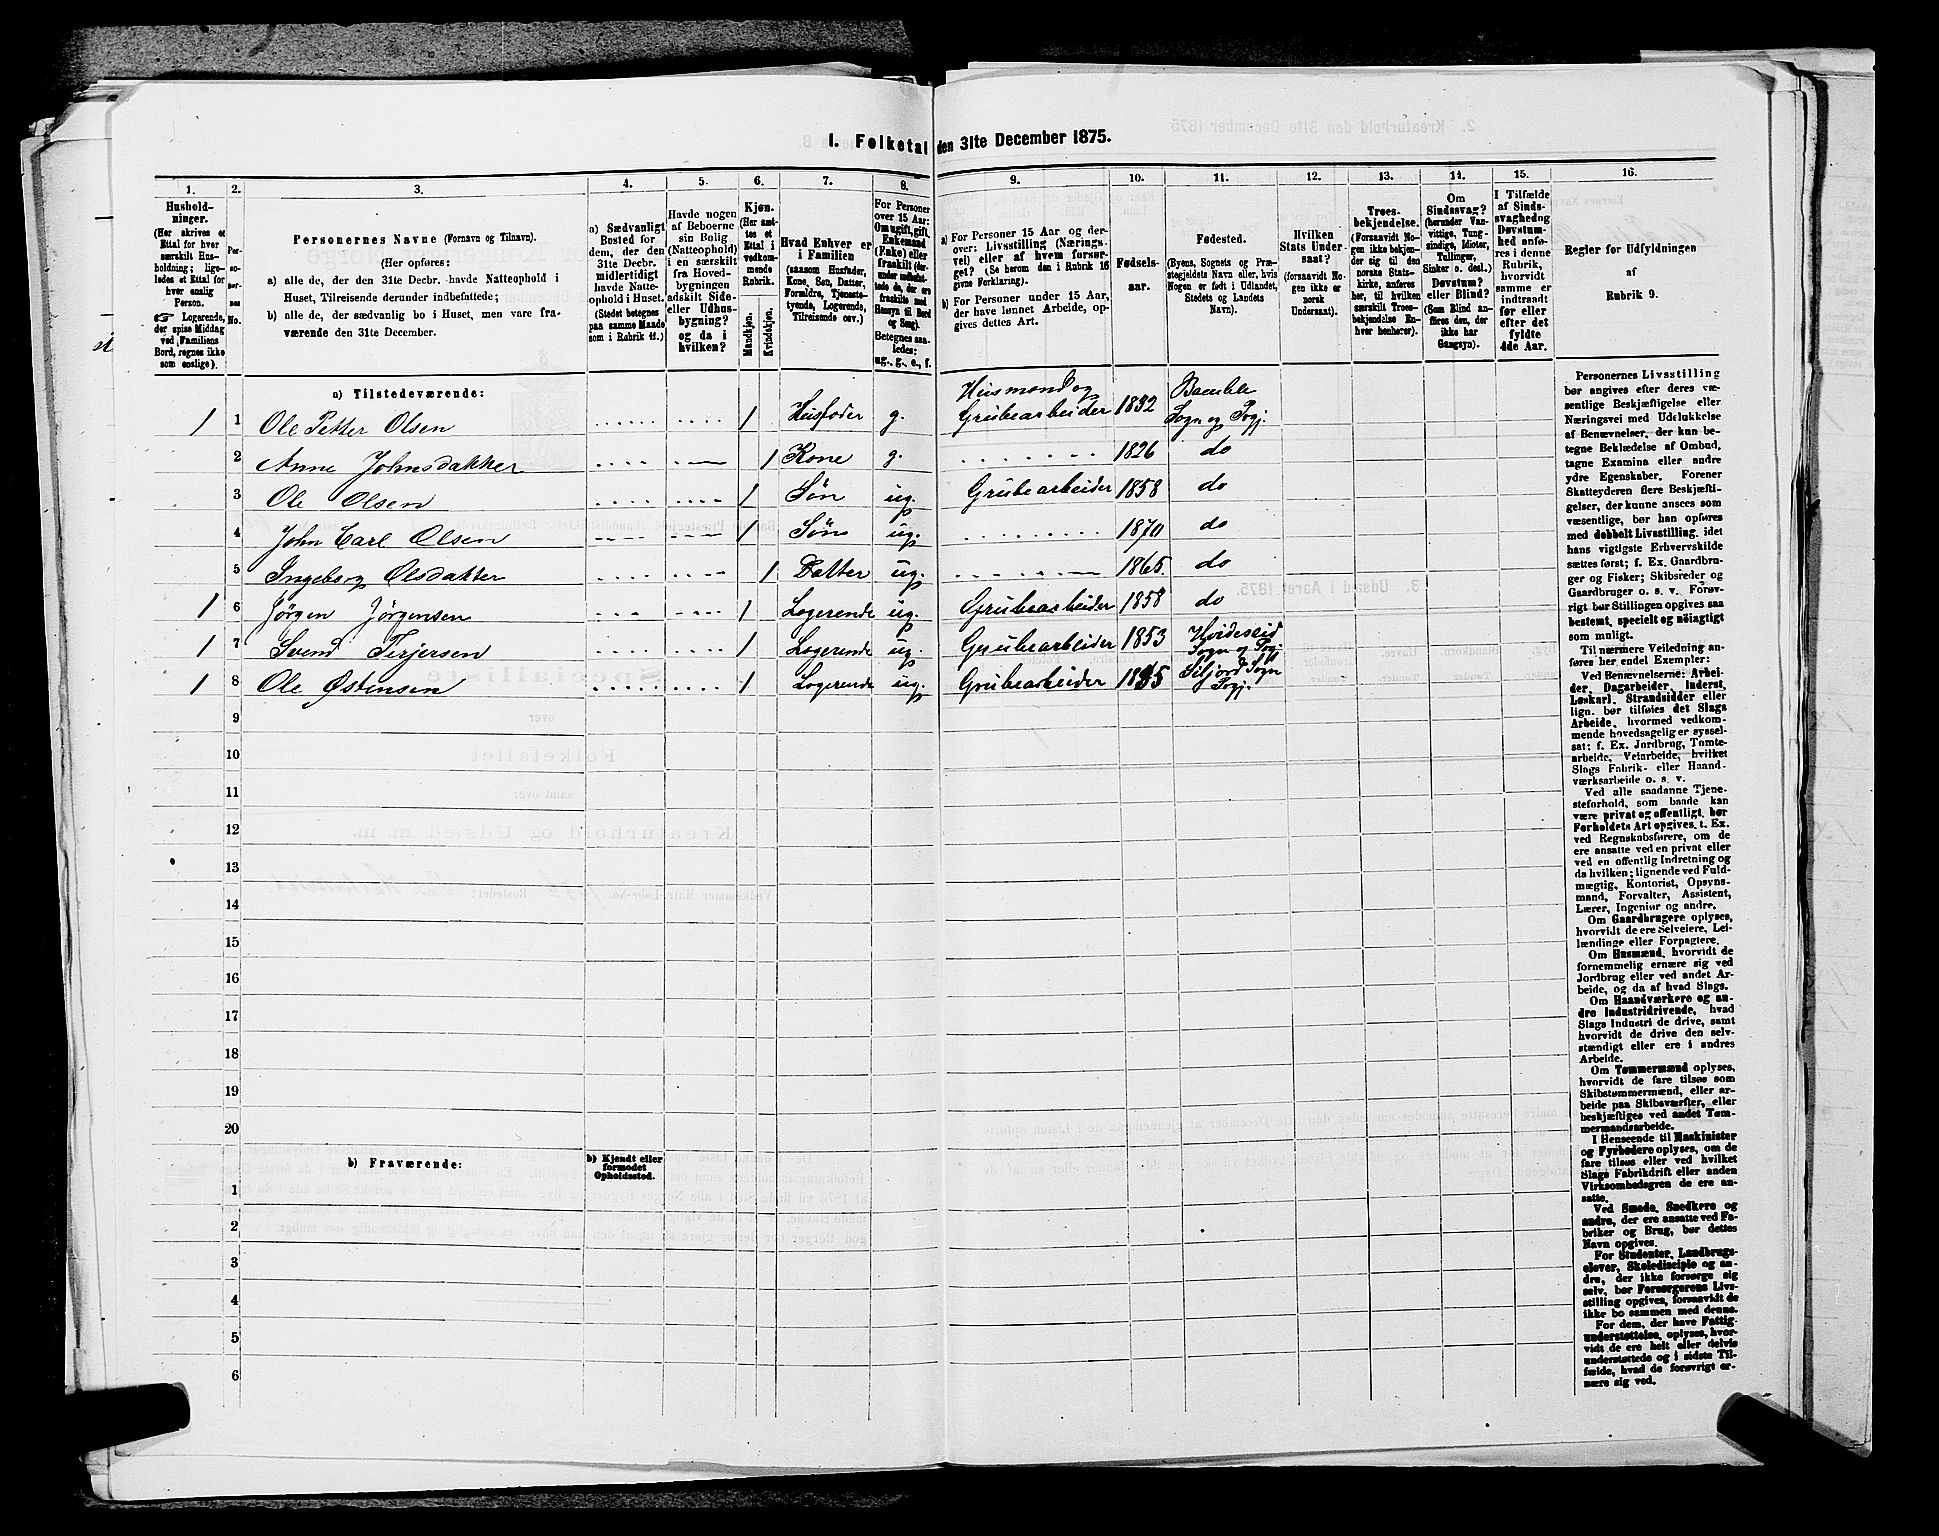 1. Folketal den 31te December 1875.
1. 2. 3. 4. 5. 6. 7. 8. 9. 10. 11. 12. 13. 14. 15. 16.
Husholdninger.
(Her skrives et
Ettal for hver
særskilt Husholdning; ligeledes
et Ettal for
hver enslig
Person.
☞ Logerende,
der spise Middag
ved Familiens
Bord, regnes ikke
som enslige).
Personernes No.
Personernes Navne (Fornavn og Tilnavn).
(Her opføres:
a) alle de, der den 31te Decbr. havde Natteophold i
Huset, Tilreisende derunder indbefattede;
b) alle de, der sædvanlig bo i Huset, men vare fraværende
den 31te December.
a) Sædvanligt
Bosted for
dem, der den
31te Decbr.
midlertidigt
havde Natteophold
i Huset.
(Stedet betegnes
paa samme Maade
som i Rubrik 11.)
Havde nogen
af Beboerne
sin Bolig
(Natteophold)
i en særskilt
fra Hovedbygningen
adskilt Sideeller
Udhusbygning?
og da i
hvilken?
Kjøn.
(Her sættes
et
Ettal i
vedkommende
Rubrik.
Mandkjøn.
Kvindekjøn.
Hvad Enhver er
i Familien
(saasom Husfader,
Kone, Søn, Datter,
Forældre, Tjenestetyende,
Logerende,
Tilreisende osv.)
For Personer
over 15 Aar:
Om ugift, gift,
Enkemand
(Enke) eller
fraskilt
Betegnes saaledes:
ug., g., e., f.
a) For Personer 15 Aar og derover:
Livsstilling (Næringsvei)
eller af hvem forsørget?
(Se herom den i Rubrik 16
givne Forklaring).
b) For Personer under 15 Aar,
der have lønnet Arbeide, opgives
dettes Art.
Fødselsaar.
Fødested.
(Byens, Sognets og Præstegjeldets
Navn eller, hvis
Nogen er født i Udlandet,
Stedets og Landets
Navn).
Hvilken
Stats Undersaat?
(forsaavidt Nogen
ikke er
norsk
Undersaat).
Troesbekjendelse.
(Forsaavidt Nogen
ikke bekjender
sig til den
norske Statskirke,
anføres
her, til hvilken
særskilt Troesbekjendelse
Enhver
henhører).
Om
Sindssvag?
(herunder Vanvittige,
Tungsindige,
Idioter,
Tullinger,
Sinker o. desl.)
Døvstum?
eller Blind?
(Som Blind anføres
den, der
ikke har
Gangsyn).
I Tilfælde
af Sindssvaghed
og
Døvstumhed
anføres
i denne
Rubrik,
hvorvidt
samme er
indtraadt
før eller
efter det
fyldte
4de Aar.
Regler for Udfyldningen
af
Rubrik 9.
a) Tilstedeværende:
1 1 Ole Petter Olsen 1 Husfader g. Husmand og Grubearbeider 1832 Bamble Sogn og Pgj.
2 Anne Johnsdatter 1 Kone g. 1826 do
3 Ole Olsen 1 Søn ug. Grubearbeider 1858 do
4 John Carl Olsen 1 Søn ug. 1870 do
5 Ingeborg Olsdatter 1 Datter ug. 1865 do
1 6 Jørgen Jørgensen 1 Logerende ug. Grubearbeider 1858 do
1 7 Svend Terjersen 1 Logerende ug. Grubearbeider 1853 Hvideseid Sogn og Pgj.
1 8 Ole Østensen 1 Logerende ug. Grubearbeider Siljord Sogn Pgj.
9
10
11
12
13
14
15
16
17
18
19
20
b) Fraværende:
b) Kjendt eller
formodet
Opholdssted.
1
2
3
4
5
6
Personernes Livsstilling
bør angives efter deres væsentlige
Beskjæftigelse eller
Næringsvei med Udelukkelse
af Benævnelser, der kun betegne
Beklædelse af Ombud,
tagne Examina eller andre
ydre Egenskaber. Forener
Skatteyderen flere Beskjæftigelser,
der kunne ansees som
væsentlige, bør han opføres
med dobbelt Livsstilling, idet
hans vigtigste Erhvervskilde
sættes først; f. Ex. Gaardbruger
og Fisker; Skibsreder og
Gaardbruger o. s. v. Forøvrigt
bør Stillingen opgives saa
bestemt, specielt og nøiagtigt
som muligt.
Til nærmere Veiledning anføres
her endel Exempler:
Ved Benævnelserne: Arbeider,
Dagarbeider, Inderst,
Løskarl, Strandsidder eller
lign. bør tilføies det Slags
Arbeide, hvormed vedkommende
hovedsagelig er sysselsat;
f. Ex. Jordbrug, Tomtearbeide,
Veiarbeide, hvilket
Slags Fabrik- eller Haandværksarbeide
o. s. v.
Ved alle saadanne Tjenesteforhold,
som baade kan
være privat og offentligt, bør
Forholdets Art opgives, t. Ex.
ved Regnskabsførere, om de
ere ansatte ved en privat eller
ved en offentlig Indretning og
da hvilken; lignende ved Fuldmægtig,
Kontorist, Opsynsmand,
Forvalter, Assistent,
Lærer, Ingeniør og andre.
Om Gaardbrugere oplyses,
hvorvidt de ere Selveiere, Leilændinge
eller Forpagtere.
Om Husmænd, hvorvidt de
fornemmelig ernære sig ved
Jordbrug eller ved andet Arbeide,
og da af hvad Slags.
Om Haandværkere og andre
Industridrivende, hvad
Slags Industri de drive, samt
hvorvidt de drive den selvstændigt
eller ere i andres
Arbeide.
Om Tømmermænd oplyses,
hvorvidt de fare tilsøs som
Skibstømmermænd, eller arbeide
paa Skibsværfter, eller
beskjæftiges ved andet Tømmermandsarbeide.
I Henseende til Maskinister
og Fyrbødere oplyses, om de
fare tilsøs eller ved hvilket
Slags Fabrikdrift eller anden
Virksomhedsgren de ere ansatte.
Ved Smede, Snedkere og
andre, der ere ansatte ved Fabriker
og Brug, bør dettes
Navn opgives.
For Studenter, Landbrugselever,
Skoledisciple og andre,
der ikke forsørge sig
selv, bør Forsørgerens Livsstilling
opgives, forsaavidt de
ikke bo sammen med denne.
For dem, der have Fattigunderstøttelse,
oplyses, hvorvidt
de ere helt eller delvis
understøttede og i sidste Tilfælde,
hvad de forøvrigt ernære
sig ved.